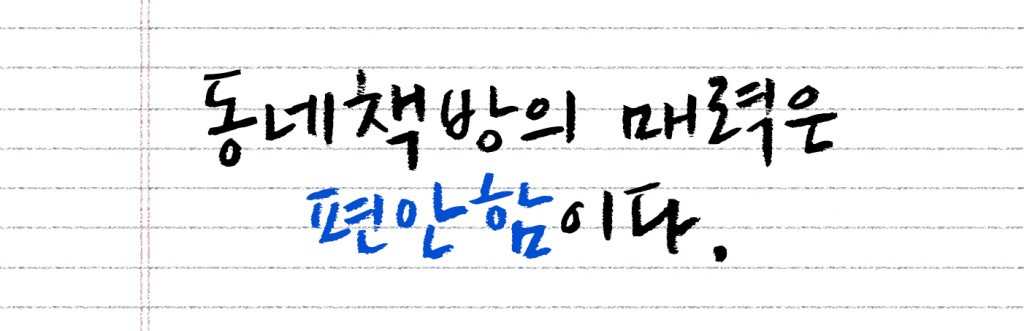 동네책방의 매력은
편안함이다.